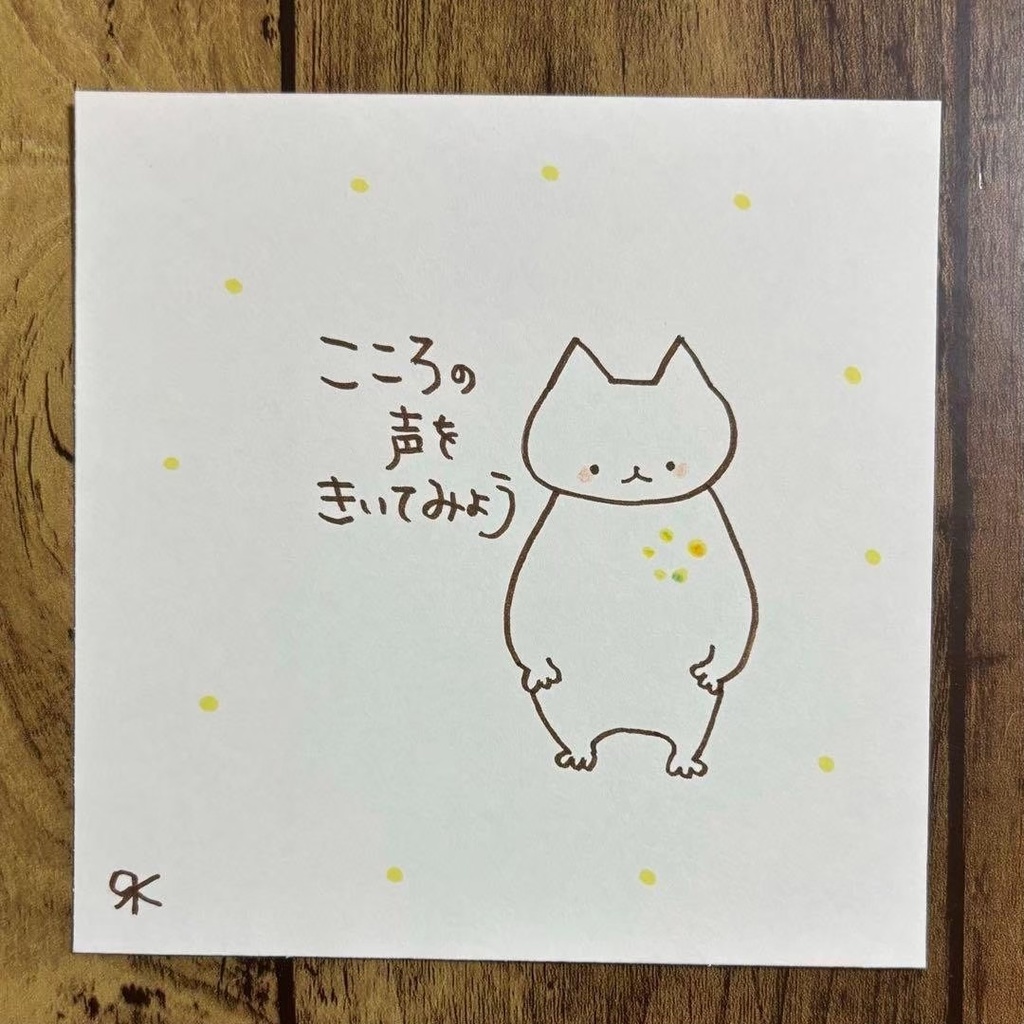 こころの
声を
きいてみよう